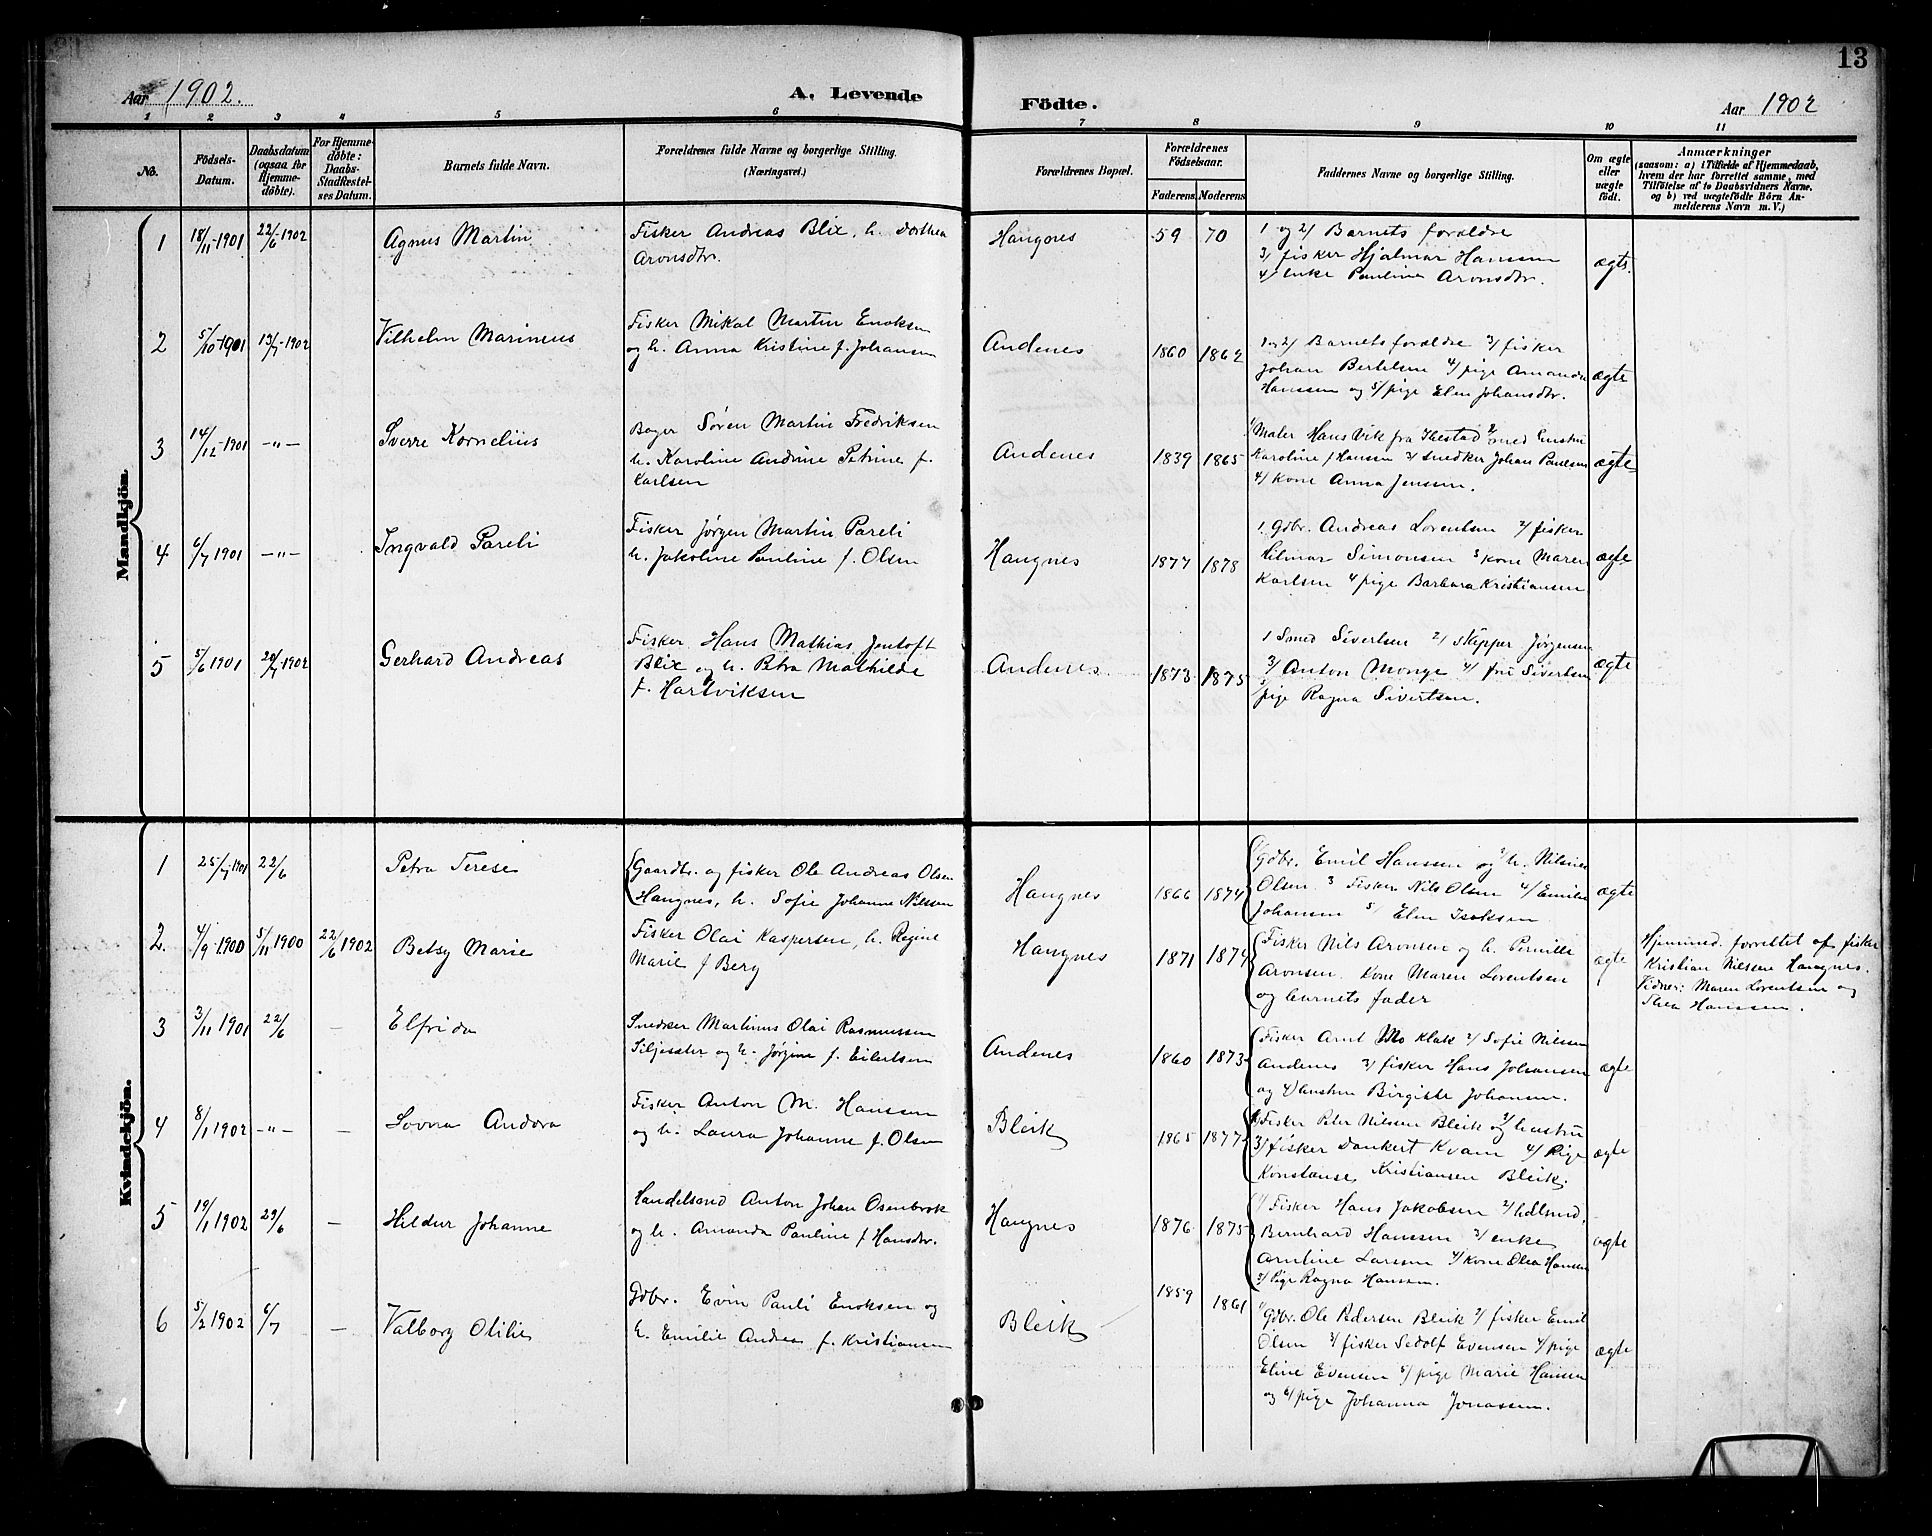 13
Aar 1902.
A. Levende
Födte.
Aar 1902
1 2 3 4 5 6 7 8 9 10 11
No.
Födsels-
Datum.
Daabsdatum
(ogsaa for
Hjemme-
döbte).
For Hjemme-
döbte:
Daabs-
Stadfæstel-
ses Datum.
Barnets fulde Navn.
Forældrenes fulde Navne og borgerlige Stilling.
(Næringsvei.)
Forældrenes Bopæl.
Forældrenes
Födselsaar.
Faderens. Moderens.
Faddernes Navne og borgerlige Stilling.
Om ægte
eller
uægte
födt.
Anmærkninger
(saasom: a) i Tilfælde af Hjemmedaab,
hvem der har forrettet samme, med
Tilföielse af to Daabsvidners Navne.
og b) ved uægtefödte Börn An-
melderens Navn m. V.)
Mandkjön.
1 18/11-1901 22/6-1902 Agnus Martin
Fisker Andreas Blix, h. Dorthea
Aronsdtr.
Haugnes 59 70
1 og 2/ Barnets forældre
3/ fisker Hjalmar Hanssen
4/ enke Pauline Aronsdtr.
ægte.
2 5/10-1901 13/7-1902 Vilhelm Marinius
Fisker Mikal Martin Enoksen
og h. Anna Kristine f. Johansen
Andenes 1860 1862
1 og 2/ Barnets forældre 3/ fisker
Johan Bertelsen 4/ pige Amanda
Hanssen og 5/ pige Elen Johansdtr.
ægte
3 14/12-1901 -"- Sverre Kornelius
Bager Søren Martin Fredriksen
h. Karoline Andrine Petrine f.
Karlsen
Andenes 1839 1865
1/ Maler Hans Vik fra Ibestad 2/ med hustru
Karoline f Hansen 3/ snedker Johan Paulsen
4/ kone Anna Jenssen.
ægte
4 6/7 1901 -"- Ingvald Pareli
Fisker Jørgen Martin Pareli
h. Jakoline Pauline f. Olsen
Haugnes 1877 1878
1. Gdbr. Andreas Lorentsen 2/ fisker
Hilmar Simonsen 3 kone Maren
Karlsen 4 pige Barbara Kristiansen
ægte
5 5/6 1901 20/7 1902 Gerhard Andreas
Fisker Hans Mathias Jentoft
Blix og h. Petra Mathilde
f. Hartviksen
Andenes 1873 1875
1 Smed Sivertsen 2/ skipper Jørgensen
3/ Anton Monge 4/ fru Sivertsen
5/ pige Ragna Sivertsen.
ægte
Kvindekjön.
1 25/7-1901 22/6 Petra Terese
Gaardbr. og fisker Ole Andreas Olsen
Haugnes, h. Sofie Johanne Nilssen
Haugnes 1866 1874
1/ Gdbr. Emil Hanssen og 2/ h. Nilsine
Olsen 3 Fisker Nils Olsen 4/ Emilie
Johansen 5/ Elen Isaksen
ægte
2. 4/9 1900 5/11 1900 22/6 1902 Betsy Marie
Fisker Olai Kaspersen, h. Regine
Marie f Berg
Haugnes 1871 1874
Fisker Nils Aronsen og h. Pernille
Aronsen. kone Maren Lorentsen
og barnets fader
ægte
Hjemmed. forrettet af fisker
Kristian Nilssen Haugnes.
Vidner: Maren Lorentsen og
Thea Hanssen.
3 3/11 1901 22/6 - Elfrida
Snedker Martinus Olai Rasmussen
Siljesæter og h. Jørgine f. Eilertsen
Andenes 1860 1873
Fisker Arnt Mo Klak 2/ Sofie Nilssen
Andenes 3/ fisker Hans Johansen
og 4/ hustru Birgitte Johansen.
ægte
4 8/1 1902 -"- - Lovna Andora
Fisker Anton M. Hanssen
og h. Laura Johanne f. Olsen
Bleik 1865 1877
1/ Fisker Peter Nilssen Bleik og 2/ hustru
3/ fisker Dankert Kvam 4/ Pige
Konstanse Kristiansen Bleik.
ægte
5 19/1 1902 29/6 - Hildur Johanne
Handelsmd Anton Johan Osenbrok
og h. Amanda Pauline f Hansdtr.
Haugnes 1876 1875
1/ Fisker Hans Jakobsen 2/ hdlsmd.
Bernhard Hanssen 3/ enke
Arntine Larssen 4/ kone Olea Hansen
5/ Pige Ragna Hanssen.
ægte
6 5/2 1902 6/7 - Valborg Otilie
Gdbr. Evin Pauli Enoksen og
h. Emilie Andrea f. Kristiansen
Bleik 1859 1861
1/ Gdbr. Ole Pedersen Bleik 2/ fisker Emil
Olsen 3/ fisker Sedolf Evensen 4/ pige
Eline Evensen 5/ pige Marie Hansen
og 6/ pige Johanna Jonassen.
ægte